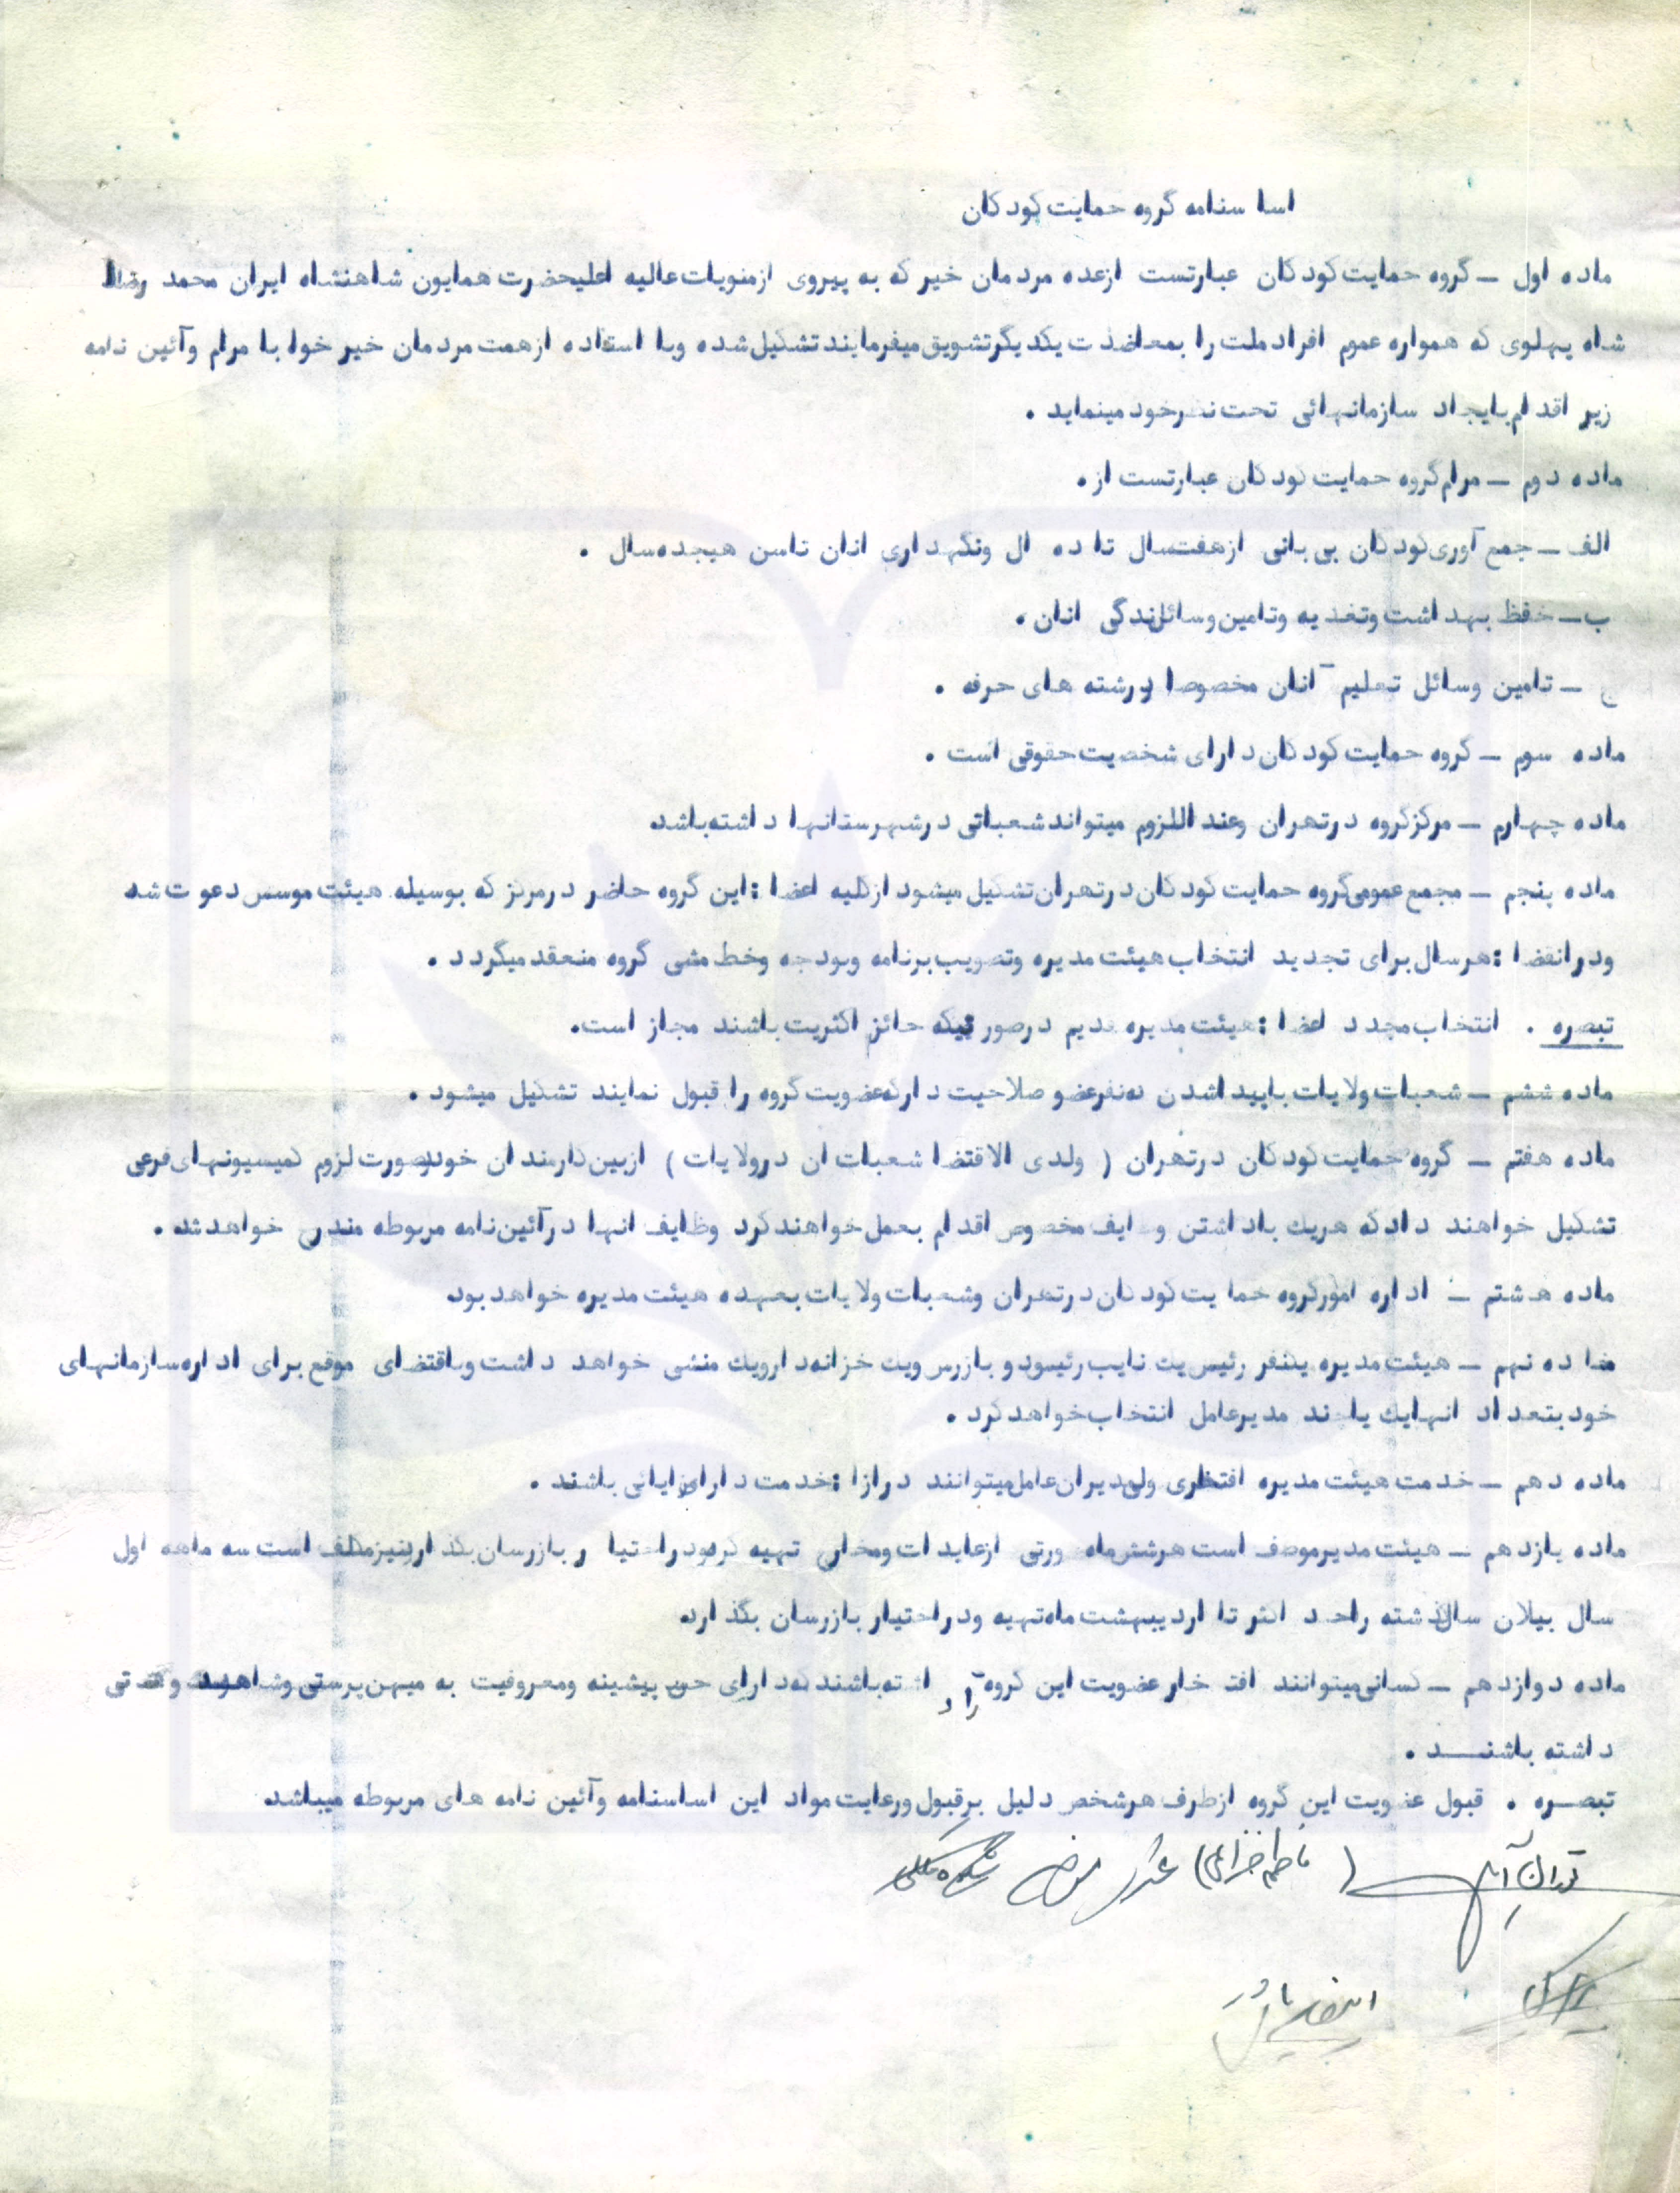 اساسنامه گروه حمایت کودکان
ماده اول – گروه حمایت کودکان عبارتست ازعده مردمان خیر که به پیروی ازمنویات عالیه اعلیحضرت همایون شاهنشاه ایران محمد رضا
شاه پهلوی که همواره عموم افراد ملت را بمعاضدت یکدیگر تشویق میفرمایند تشکیل شده وبا استفاده ازهمت مردمان خیر خواه با مرام وآئین نامه
زیر اقدام بایجاد سازمانهائی تحت نظر خود مینماید .
ماده دوم – مرام گروه حمایت کودکان عبارتست از .
الف – جمع آوری کودکان بی بانی ازهفت سال تا ده ال ونگهداری انان تاسن هیجده سال .
ب – حفظ بهداشت وتغدیه وتامین وسائل ندگی انان .
ج – تامین وسائل تعلیم آنان مخصوصا در رشته های حرفه .
ماده سوم – گروه حمایت کودکان دارای شخصیت حقوقی است .
ماده چهارم – مرکز گروه درتهران وعند اللزوم میتواند شعباتی درشهرستانها داشته باشد
ماده پنجم – مجمع عمومی گروه حمایت کودکان درتهران تشکیل میشود ازکلیه اعضاء این گروه حاضر درمرکز که بوسیله هیئت موسس دعوت شد
ودرانقضاء هرسال برای تجدید انتخاب هیئت مدیره وتصویب برنامه وبودجه وخط مشی گروه منعقد میگردد .
تبصره . انتخاب مجدد اعضاء هیئت مدیره قدیم درصورتیکه حائز اکثریت باشند مجاز است.
ماده ششم – شعبات ولایات باپیداشدن ده نفرعضو صلاحیت دارکه عضویت گروه را قبول نمایند تشکیل میشود .
ماده هفتم – گروه حمایت کودکان درتهران ( ولدی الاقتضا شعبات ان درولایات ) ازبین کارمندان خود درصورت لزوم کمیسیونهای فرعی
تشکیل خواهند داد که هریک باداشتن وظایف مخصوص اقدام بعمل خواهند کرد وظایف انها درآئین نامه مربوطه مندرج خواهد شد .
ماده هشتم – اداره امور گروه حمایت کودکان درتهران وشعبات ولایات بعهده هیئت مدیره خواهد بود
ماده نهم – هیئت مدیره یکنفر رئیس یک نایب رئیس ودو بازرس ویک خزانه دار ویک منشی خواهد داشت وباقتضای موقع برای اداره سازمانهای
خود بتعداد انهایک یاچند مدیرعامل انتخاب خواهد کرد .
ماده دهم – خدمت هیئت مدیره افتخاری ولی مدیران عامل میتوانند درازاء خدمت دارای مزایائی باشند .
ماده یازدهم – هیئت مدیر موظف است هرشش ماه صورتی ازعایدات ومخارج تهیه کرده در اختیار بازرسان بگذارد نیز مکلف است سه ماهه اول
سال بیلان سال گذشته راحد اکثر تا اردیبهشت ماه تهیه ودراختیار بازرسان بگذارد
ماده دوازدهم – کسانی میتوانند افتخار عضویت این گروه را داشته باشند که دارای حسن پیشینه ومعروفیت به میهن پرستی وشاهدوستی
داشته باشنــد .
تبصـره . قبول عضویت این گروه ازطرف هرشخص دلیل برقبول ورعایت مواد این اساسنامه وآئین نامه های مربوطه میباشد
(فاطمه خزاعی)